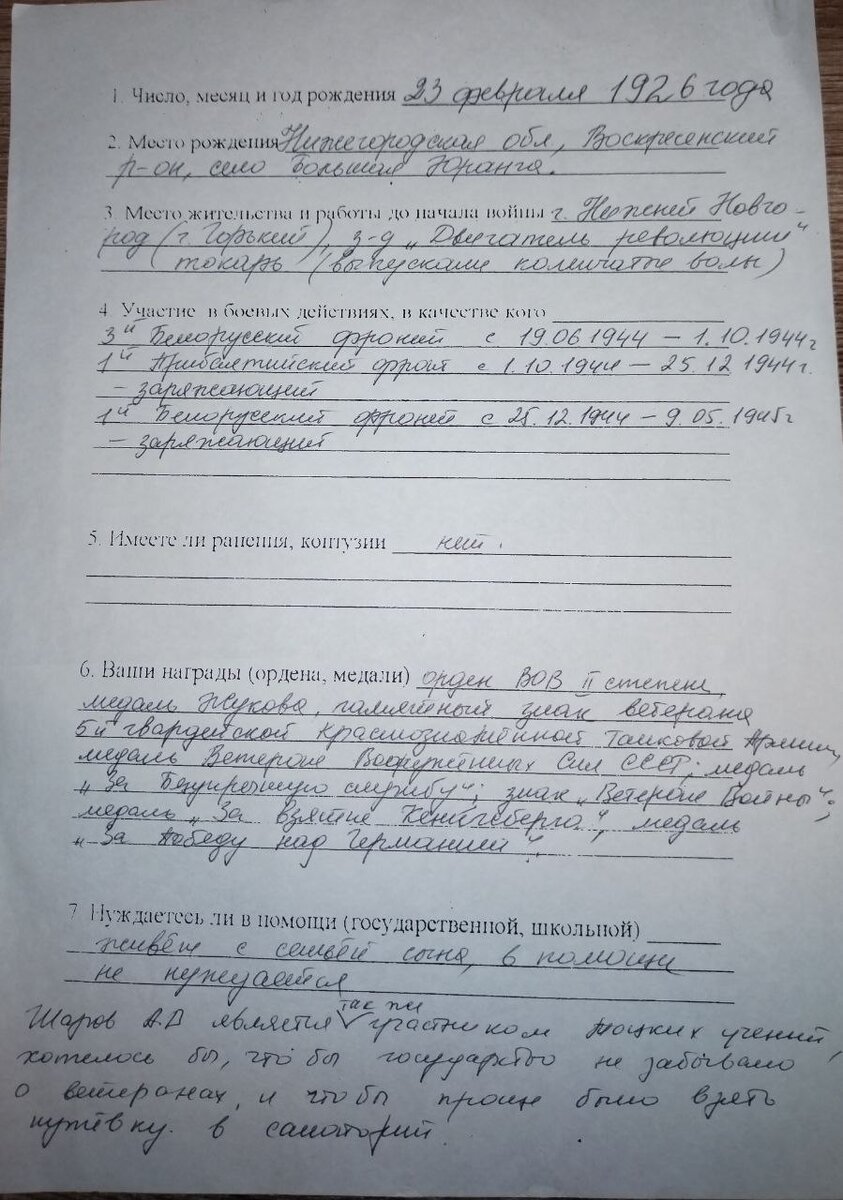 1. Число, месяц и год рождения 23 февраля 1926 года
2. Место рождения Нижегородская обл, Воскресенский
р-он, село Большая Юранга.
3. Место жительства и работы до начала войны г. Нижней Новго-
род (г. Горький), з-д „Двигатель революции“
токарь (выпускали коленчатые волы)
4. Участие в боевых действиях, в качестве кого
3й Белорусский фронтй с 19.06 1944 – 1.10.1944г
1й Прибалтийский фронт с 1.10.1944 – 25.12 1944г.
– заряжающий
1й Белорусский фронтй с 25.12.1944 – 9.05.1945г
– заряжающий
5. Имеете ли ранения, контузии нет.
6. Ваши награды (ордена, медали) орден ВОВ II степени,
медаль Жукова, памятный знак ветерана
5й гвардейской Краснознамённой Танковой Армии,
медаль Ветеран Вооружённых Сил СССР; медаль
„За Безупречную службу“; знак „Ветеран Войны“;
медаль „За взятие Кенигсберга“, медаль
„За Победу над Германией“.
7. Нуждаетесь ли в помощи (государственной, школьной)
живёт с семьёй сына, в помощи
не нуждается
так же
Шаров А.Д является участником Тоцких учений,
хотелось бы, что бы государство не забывало
о ветеранах, и что бы проще было взять
путёвку. в санаторий.